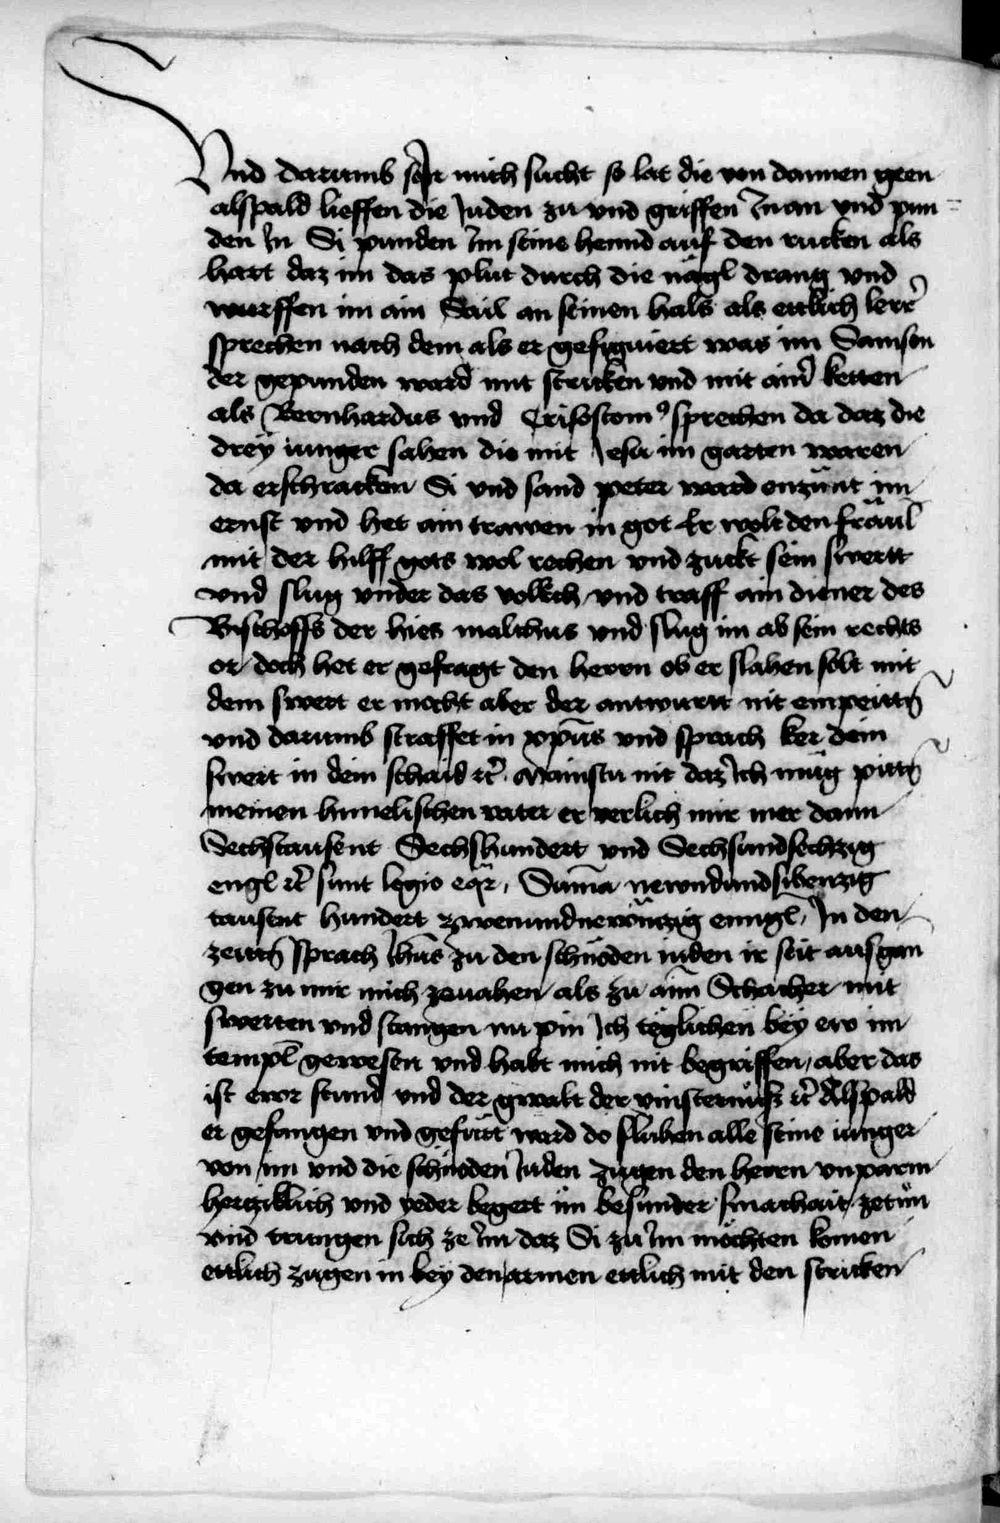 Vnd darumb seyt ir mich sucht so lat die von dannen geen
alspald lieffen die Juden zu vnd griffen Jn an vnd pun=
den Jn Si punden Jm seine hennd auf den rucken als
hart daz im das plut durch die nägl drang vnd
wurffen im ain Sail an seinen hals als ettlich lerer̃
sprechen nach dem als er gefiguriert was im Samson
der gepunden ward mit stricken vnd mit ainer̃ ketten
als Bernhardus vnd Crisostomꝰ sprechen da daz die
dreÿ iunger sahen die mit Jesu im garten waren
da erschracken Si vnd sand peter ward enzünt im
ernst vnd het ain trawen in got Er wolt den fräuel
mit der hilff gots wol rechen vnd zuckt sein swertt
vnd slug vnder das volkch vnd traff ain diener des
Bischoffs der hies malchus vnd slug im ab sein rechts
or doch het er gefragt den herrn ob er slahen solt mit
dem swert er mocht aber der antwurtt nit enpeittñ
vnd darumb straffet in xp̄us vnd sprach ker dein
swert in dein schaid ꝛc̃ Mainstu nit daz ich müg pittñ
meinen himelischen vater er verlich mir mer dann
Sechstausent Sechshundert vnd Sechsundsechzig
engl ꝛc̃ sunt legio eqr, Sum̄a newndundsibenzig
tausent hundert zwenundnewñzig enngl̄, In den
zeittñ sprach Jh̄us zu den schnöden iuden ir seit ausgan
gen zu mir mich zeuahen als zu aim̄ Schacher mit
swerten vnd stangen nu pin Jch täglichen beÿ ew im
templ̄ gewesen vnd habt mich nit begriffen, aber das
ist ewr stund vnd der gwalt der vinsternüsz ꝛc̃ Alspald
er gefangen vnd gefürt ward do fluhen alle seine iunger
von im vnd die schnöden Juden zugen den herrn vnparm
hertziklich vnd yeder begert im besunder smachait zetün
vnd trungen sich ze im daz Si zu im möchten komen
ettlich zugen in beÿ den armen ettlich mit den stricken